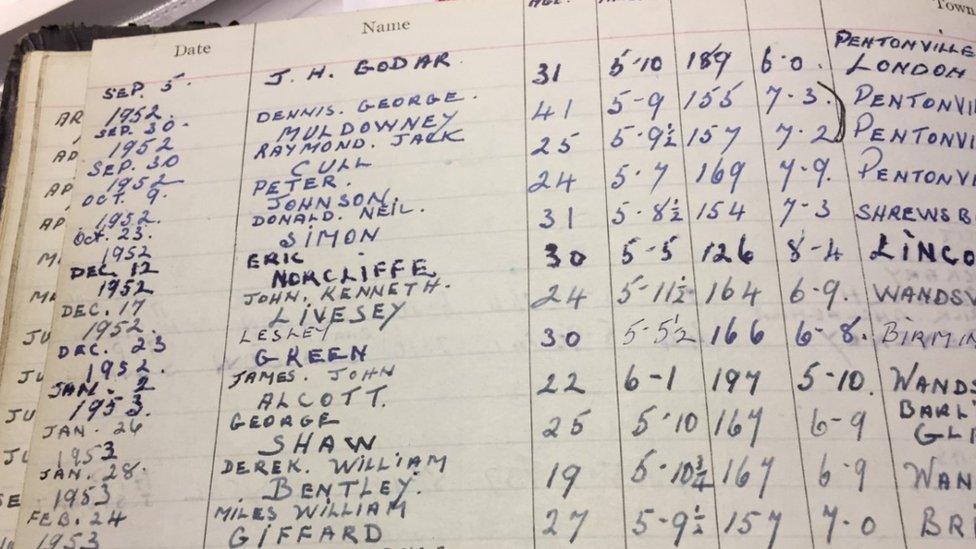 Date Name AGE. Town
SEP. 5. 1952. J. H. GODAR. 31 5-10 189 6-0. PENTONVILLE LONDON
SEP. 30. 1952 DENNIS. GEORGE. MULDOWNEY 41 5-9 155 7-3. PENTONVI
SEP. 30 1952 RAYMOND. JACK CULL 25 5-9½ 157 7-2 PENTONVI
OCT. 9. 1952. PETER. JOHNSON. 24 5-7 169 7-9. PENTONVI
OCT. 23. 1952 DONALD. NEIL. SIMON 31 5-8½ 154 7-3 SHREWSB
DEC. 12 1952 ERIC NORCLIFFE 30 5-5 126 8-4 LINCO
DEC. 17 1952. JOHN. KENNETH. LIVESEY 24 5-11½ 164 6-9. WANDS
DEC. 23 1952. LESLEY GREEN 30 5-5½ 166 6-8. BIRMIN
JAN. 2 1953. JAMES. JOHN ALCOTT. 22 6-1 197 5-10. WANDS
JAN. 26 1953 GEORGE SHAW 25 5-10 167 6-9 BARL GL
JAN. 28. 1953 DEREK. WILLIAM BENTLEY. 19 5-10¾ 167 6-9 WAN
FEB. 24 1953 MILES WILLIAM GIFFARD 27 5-9½ 157 7-0 BR